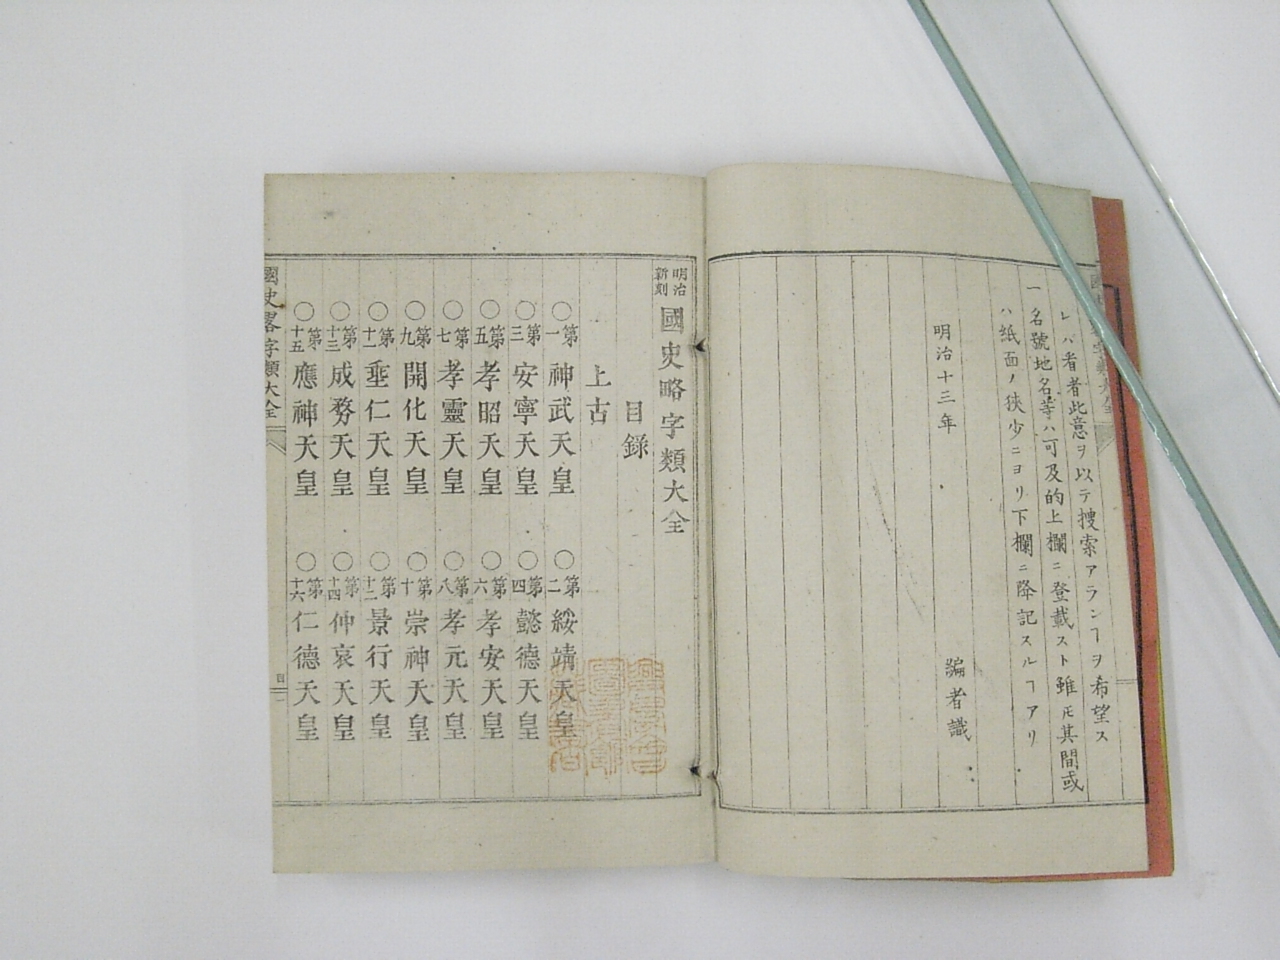 レバ看者此意ヲ以テ搜索アランヿヲ希望ス
一名號地名等ハ可及的上欄ニ登載スト雖𪜈其間或
ハ紙面ノ狹少ニヨリ下欄ニ降記スルヿアリ
明治十三年
編者識
明治新刻 國史略字類大全
目錄
上古
〇第一神武天皇 〇第二綏靖天皇
〇第三安寧天皇 〇第四懿德天皇
〇第五孝昭天皇 〇第六孝安天皇
〇第七孝靈天皇 〇第八孝元天皇
〇第九開化天皇 〇第十崇神天皇
〇第十一垂仁天皇 〇第十二景行天皇
〇第十三成務天皇 〇第十四仲哀天皇
〇第十五應神天皇 〇第十六仁德天皇
國史畧字類大全